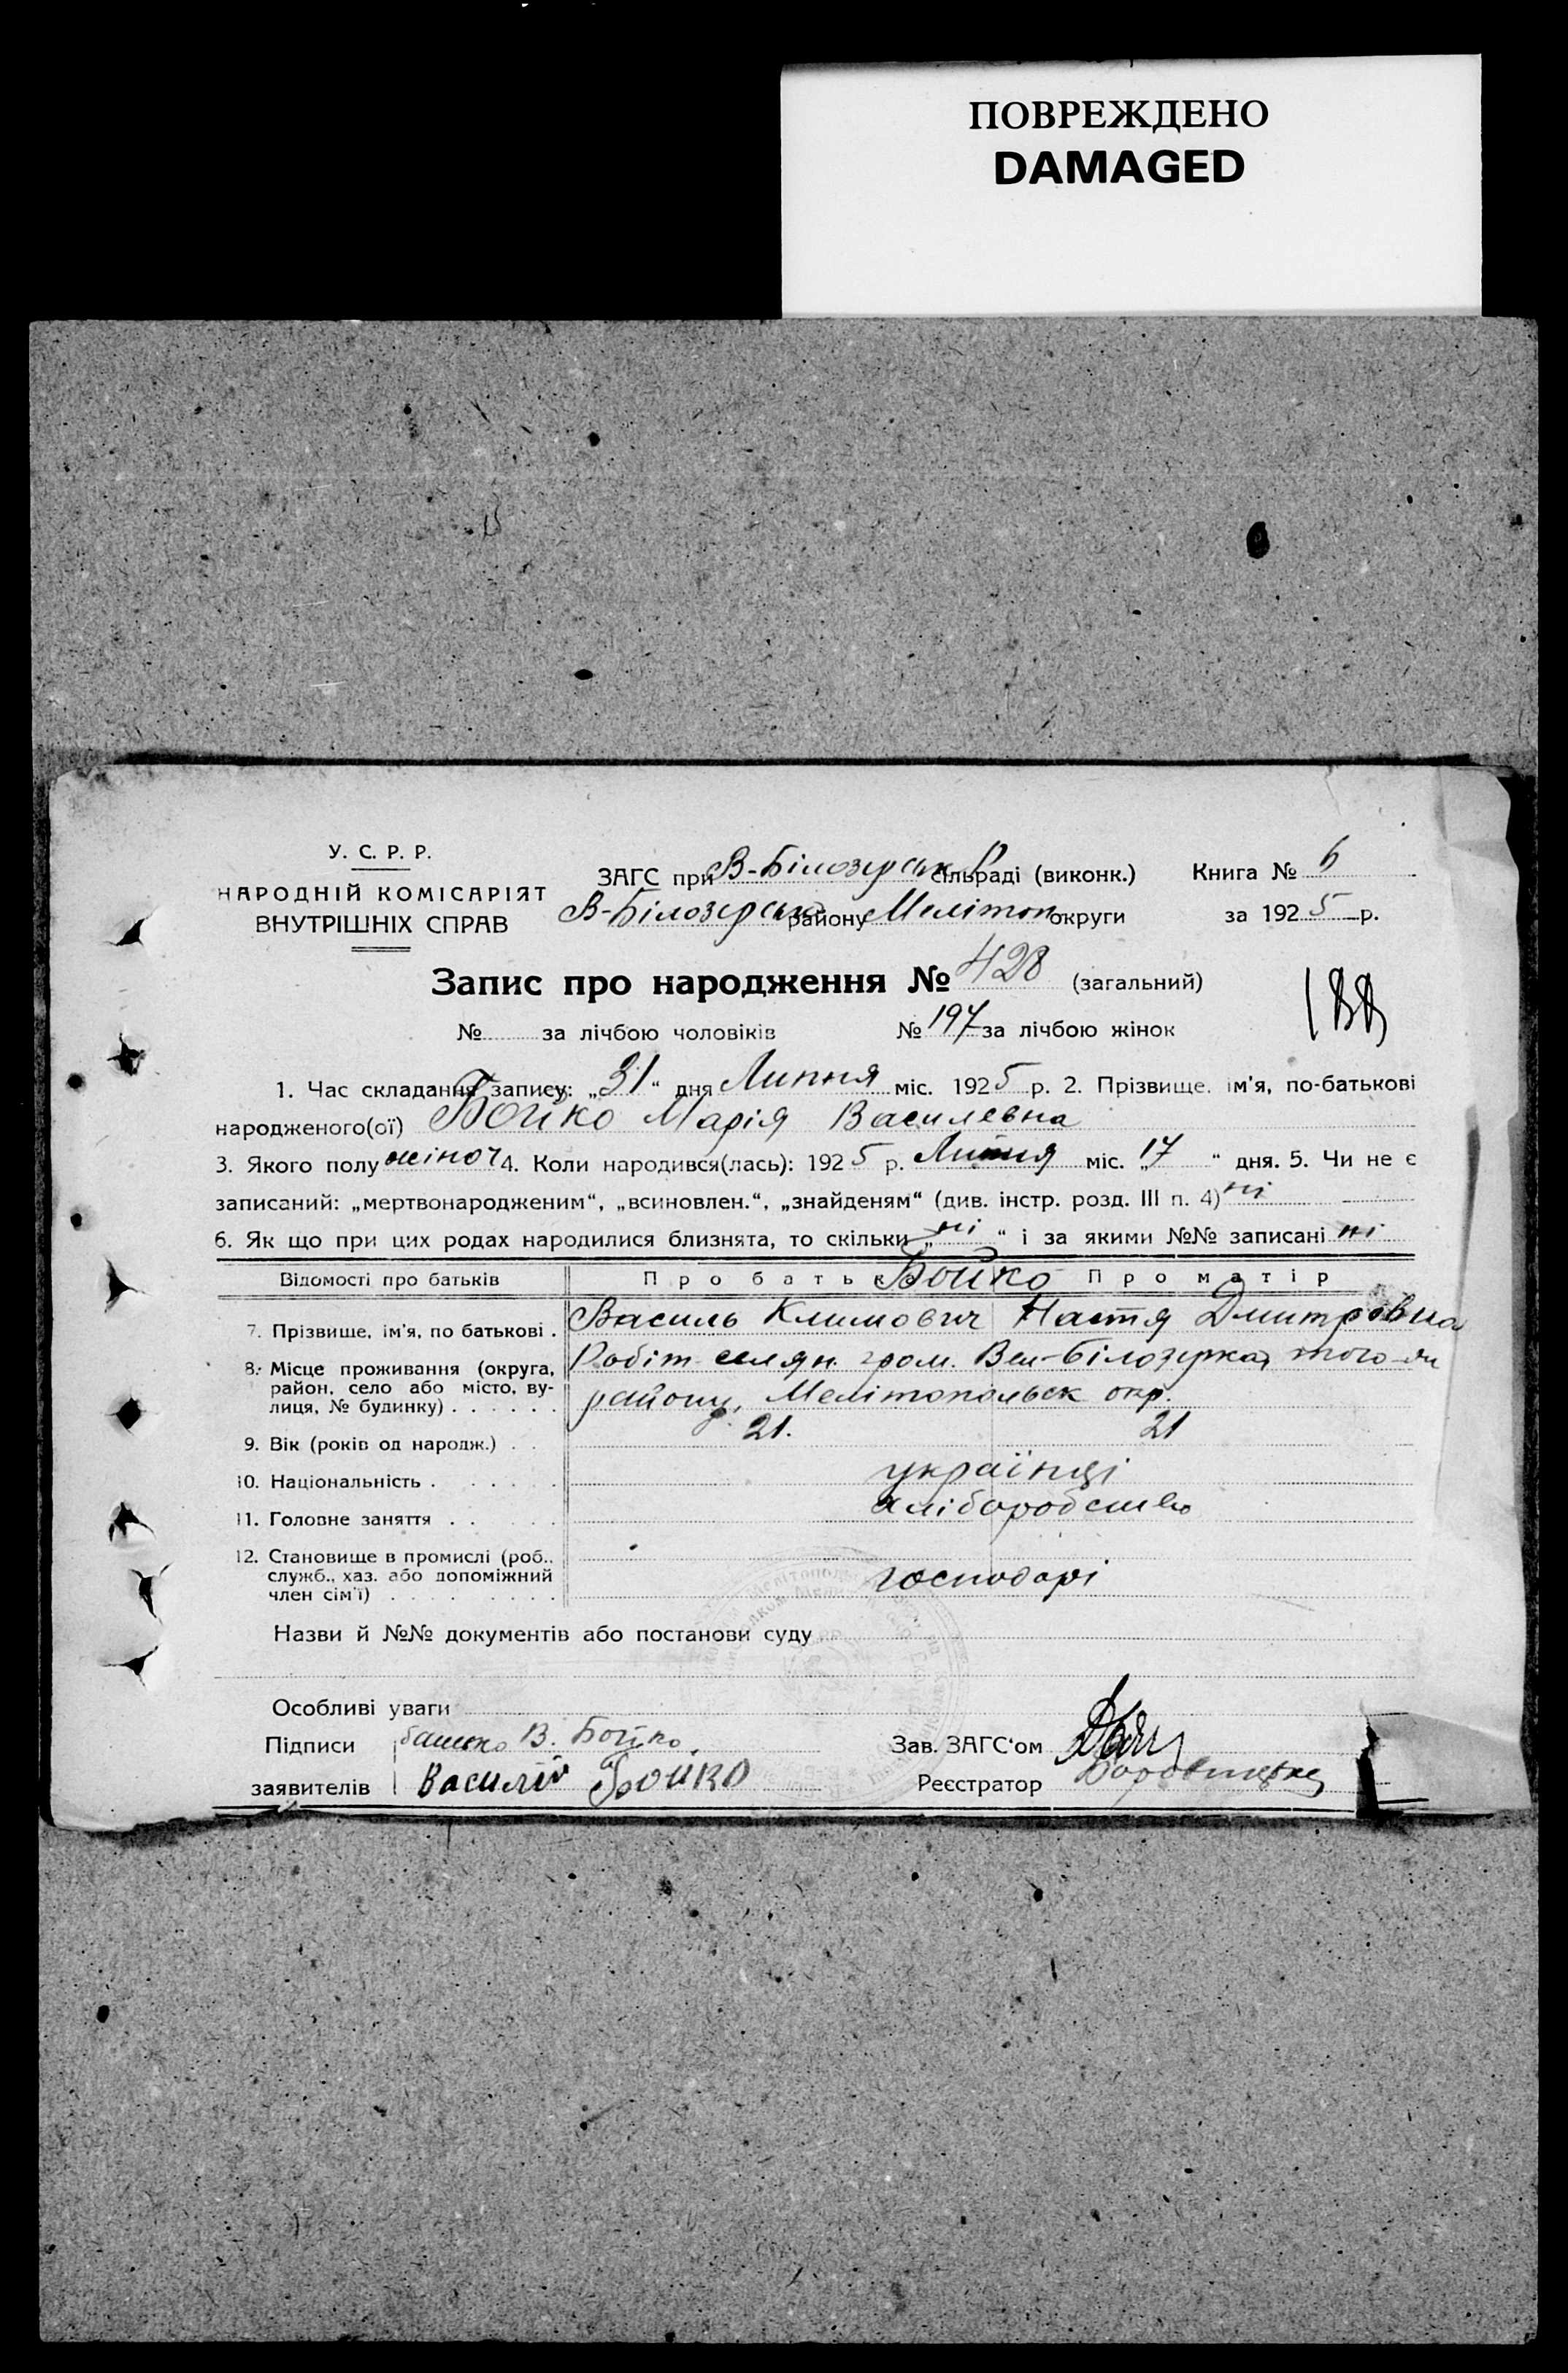 ПОВРЕЖДЕНО
DAMAGED
У. С. Р. Р.
НАРОДНІЙ КОМІСАРІЯТ
ВНУТРІШНІХ СПРАВ
ЗАГС при В-Білозерськ сільраді (виконк.) Книга № 6
В-Білозерська району Мелітоп округи за 1925 р.
Запис про народження № 428 (загальний)
188
№ за лічбою чоловіків № 197 за лічбою жінок
1. Час складання запису: „31“ дня Липня міс. 1925 р. 2. Прізвище, ім'я, по-батькові
народженого(ої) Бойко Марія Василевна
3. Якого полу жіноч 4. Коли народився(лась): 1925 р. Липня міс. „17“ дня. 5. Чи не є
записаний: „мертвонародженим“, „всиновлен.“, „знайденям“ (див. інстр. розд. III п. 4) ні
6. Як що при цих родах народилися близнята, то скільки „ні“ і за якими №№ записані ні
Відомості про батьків Про батька Бойко Про матір
7. Прізвище, ім'я, по батькові . Василь Климович Настя Дмитровна
8. Місце проживання (округа, Робіт-селян. гром. Вел-Білозерка того-ж
район, село або місто, ву-
лиця, № будинку) . . . . . . району, Мелітопольск окр.
9. Вік (років од народж.) . . 21. 21
10. Національність . . . . . . українці
11. Головне заняття . . . . . хліборобство
12. Становище в промислі (роб.,
служб., хаз. або допоміжний
член сім'ї) . . . . . . . . господарі
Назви й №№ документів або постанови суду
Особливі уваги
Підписи батько В. Бойко Зав. ЗАГС'ом
заявителів Василій Бойко Реєстратор